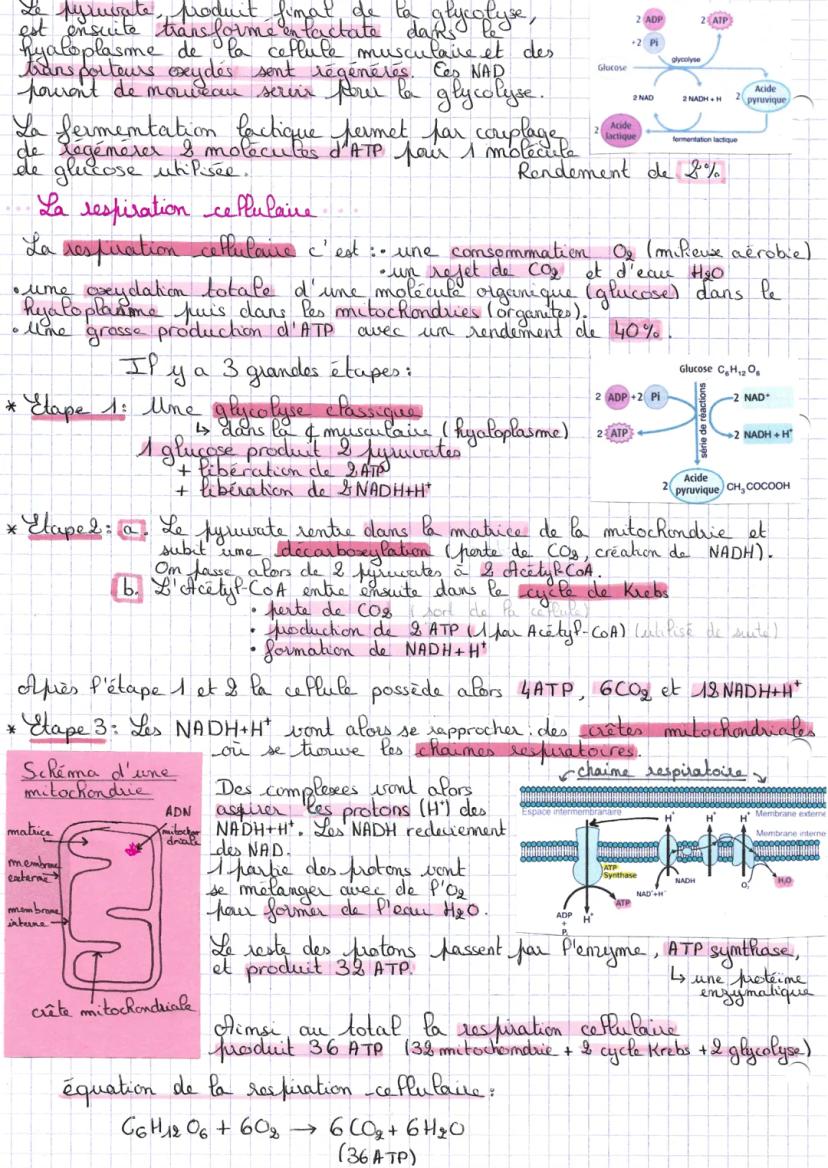 Le pyruvate, produit final de la glycolyse,
est ensuite transformé en lactate dans le
hyaloplasme de la cellule musculaire et des
transporteurs oxydés sont régénérés. Ces NAD
pouront de nouveau servir pour la glycolyse.
2 ADP
2 ATP
+2 Pi
glycolyse
Glucose
2 NAD
2 NADH + H
2 Acide pyruvique
2 Acide lactique
fermentation lactique
La fermentation lactique permet par couplage
de régénérer 2 molécules d'ATP pour 1 molécule
de glucose utilisée.
Rendement de 2%
La respiration cellulaire
La respiration cellulaire c'est : • une consommation O₂ (milieux aérobie)
• un rejet de CO₂ et d'eau H₂O
• une oxydation totale d'une molécule organique (glucose) dans le
hyaloplasme puis dans les mitochondries (organites).
• Une grosse production d'ATP avec un rendement de 40%.
Il y a 3 grandes étapes :
* Etape 1 : Une glycolyse classique
↳ dans la ¢ musculaire (hyaloplasme)
1 glucose produit 2 pyruvates
+ libération de 2 ATP
+ libération de 2 NADH+H⁺
Glucose C₆H₁₂O₆
2 ADP + 2 Pi
2 NAD⁺
2 ATP
2 NADH + H⁺
série de réactions
2 Acide pyruvique CH₃COCOOH
* Etape 2 : a. Le pyruvate rentre dans la matrice de la mitochondrie et
subit une décarboxylation (perte de CO₂, création de NADH).
On passe alors de 2 pyruvates à 2 Acétyl-CoA.
b. L'Acétyl-CoA entre ensuite dans le cycle de Krebs
• perte de CO₂ (sort de la cellule)
• production de 2 ATP (1 par Acétyl-CoA) (utilisé de suite)
• formation de NADH+H⁺
Après l'étape 1 et 2 la cellule possède alors 4ATP, 6CO₂ et 12 NADH+H⁺
* Etape 3 : Les NADH+H⁺ vont alors se rapprocher : des crêtes mitochondriales
où se trouve les chaînes respiratoires.
Schéma d'une
mitochondrie
ADN
mitochon
driale
matrice
membrane
externe
membrane
interne
crête mitochondriale
Des complexes vont alors
aspirer les protons (H⁺) des
NADH+H⁺. Les NADH redeviennent
des NAD.
1 partie des protons vont
se mélanger avec de l'O₂
pour former de l'eau H₂O.
chaîne respiratoire
Espace intermembranaire
H⁺
H⁺
H⁺
Membrane externe
Membrane interne
ATP Synthase
NAD⁺H⁺
NADH
O₂
H₂O
ATP
ADP
+
Pi
H⁺
Le reste des protons passent par l'enzyme, ATP synthase,
et produit 32 ATP.
↳ une protéine
enzymatique
Ainsi au total la respiration cellulaire
produit 36 ATP (32 mitochondrie + 2 cycle Krebs + 2 glycolyse)
équation de la respiration cellulaire :
C₆H₁₂O₆ + 6O₂ → 6CO₂ + 6H₂O
(36 ATP)